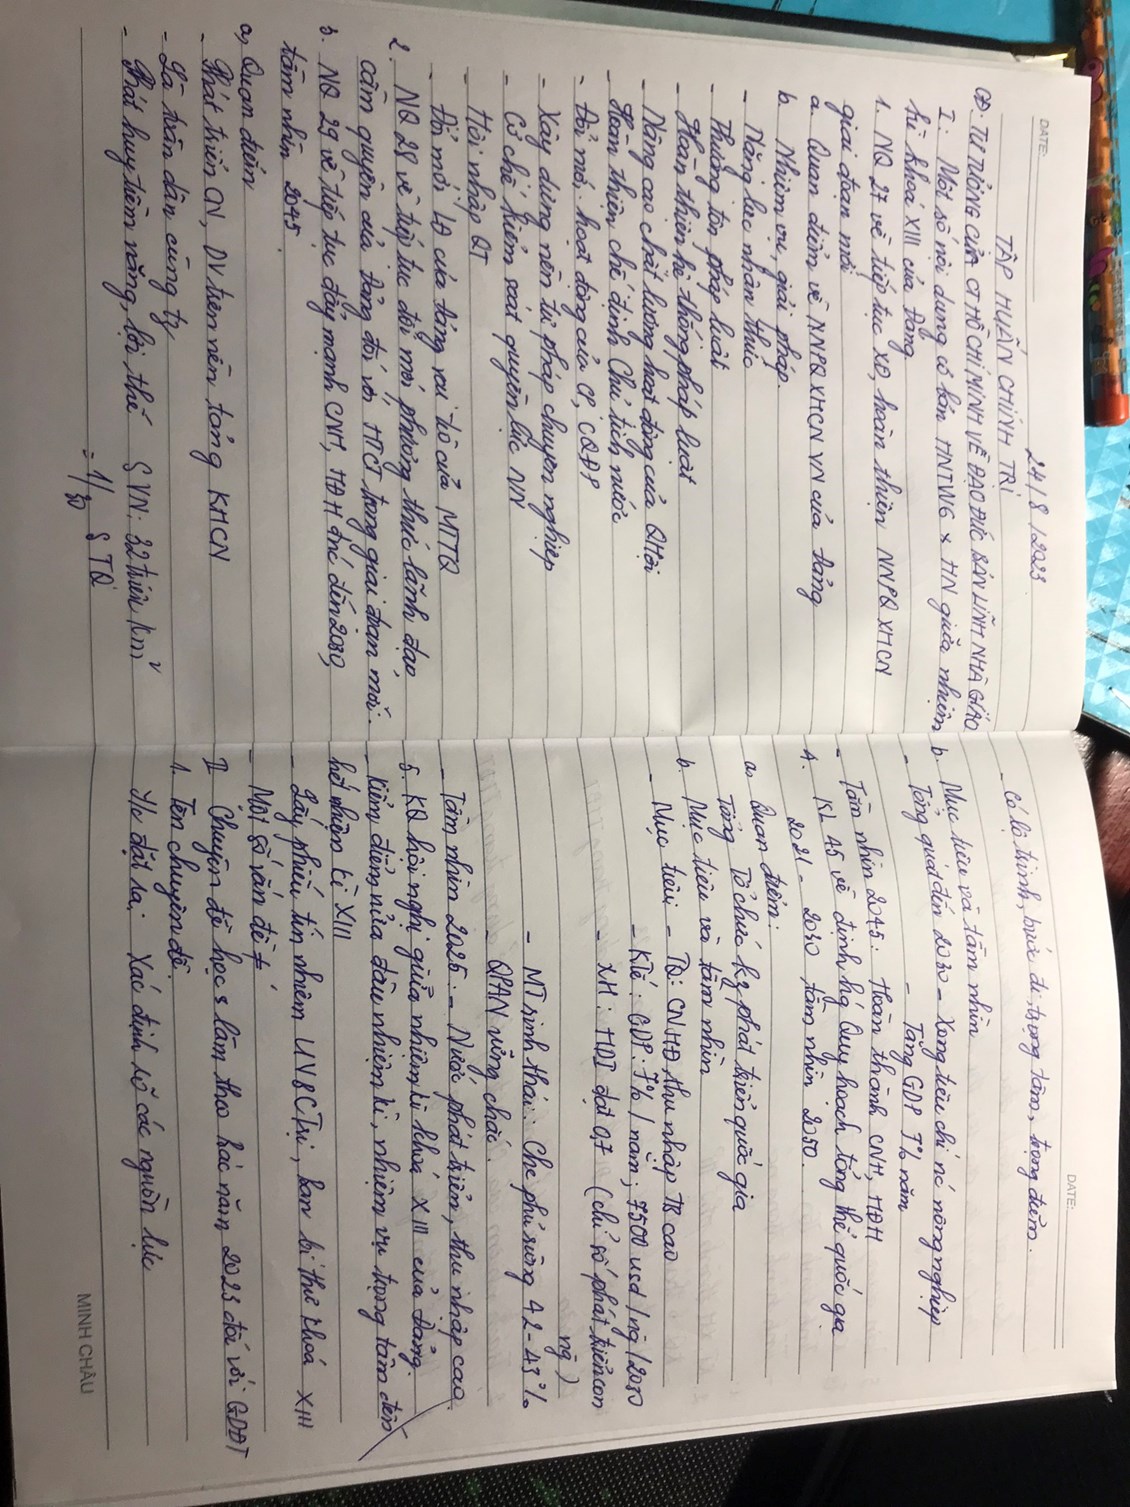 DATE:
24/8/2023
TẬP HUẤN CHÍNH TRỊ
TƯ TƯỞNG CỦA CT HỒ CHÍ MINH VỀ ĐẠO ĐỨC BẢN LĨNH NHÀ GIÁO
I. Một số nội dung cơ bản HNTW6 & HN giữa nhiệm
kì khoá XIII của Đảng
1. NQ 27 về tiếp tục XD, hoàn thiện NNPQ XHCN
giai đoạn mới
a. Quan điểm về NNPQ XHCN VN của Đảng
b. Nhiệm vụ, giải pháp
- Nâng cao nhận thức
- Thượng tôn pháp luật
- Hoàn thiện hệ thống pháp luật
- Nâng cao chất lượng hoạt động của QHội
- Hoàn thiện chế định Chủ tịch nước
- Đổi mới hoạt động của CP, CQĐP
- Xây dựng nền tư pháp chuyên nghiệp
- Cơ chế kiểm soát quyền lực NN
- Hội nhập QT
- Đổi mới LĐ của Đảng, vai trò của MTTQ
2. NQ 28 về tiếp tục đổi mới phương thức lãnh đạo
cầm quyền của Đảng đối với HTCT trong giai đoạn mới.
3. NQ 29 về tiếp tục đẩy mạnh CNH, HĐH đnc đến 2030,
tầm nhìn 2045.
a, Quan điểm
- Phát triển CN, DV trên nền tảng KHCN
- Là toàn dân cùng
- Phát huy tiềm năng, lợi thế S VN: 32 triệu km²
= 1/30 S TQ
DATE:
- Có lộ trình, bước đi, trọng tâm, trọng điểm.
b. Mục tiêu và tầm nhìn
- Tổng quát đến 2030 - Xong tiêu chí nc nông nghiệp
- Tăng GDP 7% năm
- Tầm nhìn 2045: Hoàn thành CNH, HĐH
4. KL 45 về định hg Quy hoạch tổng thể quốc gia
2021 - 2030 tầm nhìn 2050.
a, Quan điểm:
Tổng Tổ chức kg phát triển quốc gia
b. Mục tiêu và tầm nhìn
- Mục tiêu: - TQ: CNHĐ, thu nhập TB cao
- KTế: GDP: 7%/năm; 7500 usd/ng/2030
- XH: HDI đạt 0,7 (chỉ số phát triển con
ng)
- MT sinh thái: Che phủ rừng 42-43%
- QPAN vững chắc.
- Tầm nhìn 2025: - Nước phát triển, thu nhập cao
5. KQ hội nghị giữa nhiệm kì khoá XIII của Đảng.
- Kiểm điểm nửa đầu nhiệm kì, nhiệm vụ trọng tâm đến
hết nhiệm kì XIII
- Lấy phiếu tín nhiệm UVBCTrị, ban bí thư khoá XIII
- Một số vấn đề ≠
II. Chuyên đề học & làm theo Bác năm 2023 đối với GDĐT
1. Tên chuyên đề.
Y/c đặt ra: Xác định rõ các nguồn lực
MINH CHÂU